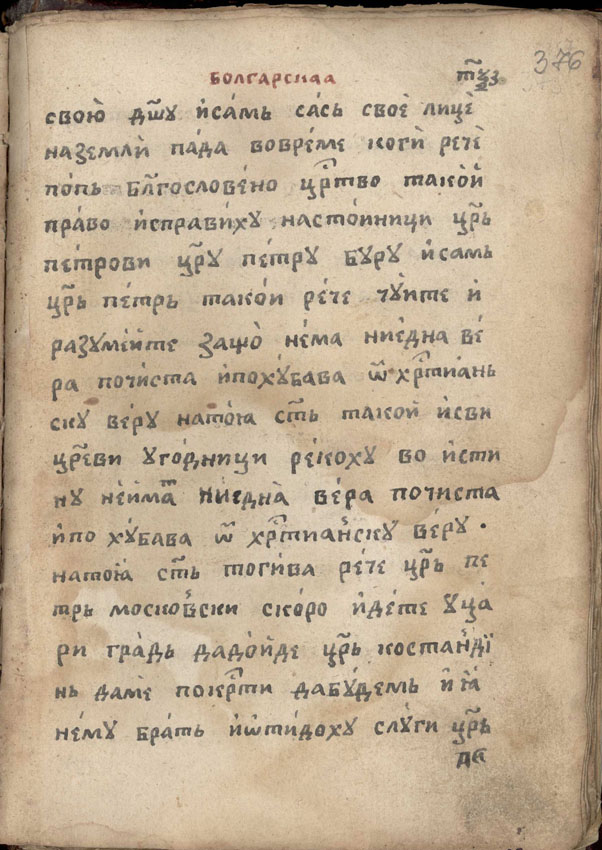 БОЛГАРСКАА т҃ѹз 376
свою̀ дш҃ѹ ѝса́мь са́сь своѐ лицѐ
наземлѝ па́да вовре́ме когѝ речѐ
по́пь бл҃гослове́но црⷭ҇тво тако́й
пра́во ѝспра́виху насто́йници цр҃ь
пе́трови цр҃ꙋ пе́трꙋ бꙋ́рꙋ ѝсамь
цр҃ь пе́трь тако́и ре́че чꙋ́ите ѝ
разꙋме́йте защо̀ не́ма ние́дна ве́
ра почи́ста ѝпохꙋ́бава ѿ хрⷭ҇тиа́нь
скꙋ ве́рꙋ на то́ꙗ ст҃ь тако́й ѝсви
цр҃еви ꙋго́дници реко́хꙋ во ѝсти
нꙋ не́има ние́дна ве́ра почи́ста
ѝпо хꙋ́бава ѿ хрⷭ҇тиа́нскꙋ ве́рꙋ ·
на то́ꙗ ст҃ь тоги́ва ре́че цр҃ь пе
трь моско́вски ско́ро ѝде́те ꙋца
ри гра́дь дадо́йде цр҃ь костанді
нь дамѐ покрⷭ҇ти дабꙋ́демь ѝ ꙗ
не́мꙋ бра́ть ѝѿти́дохꙋ слꙋ́ги цр҃ь